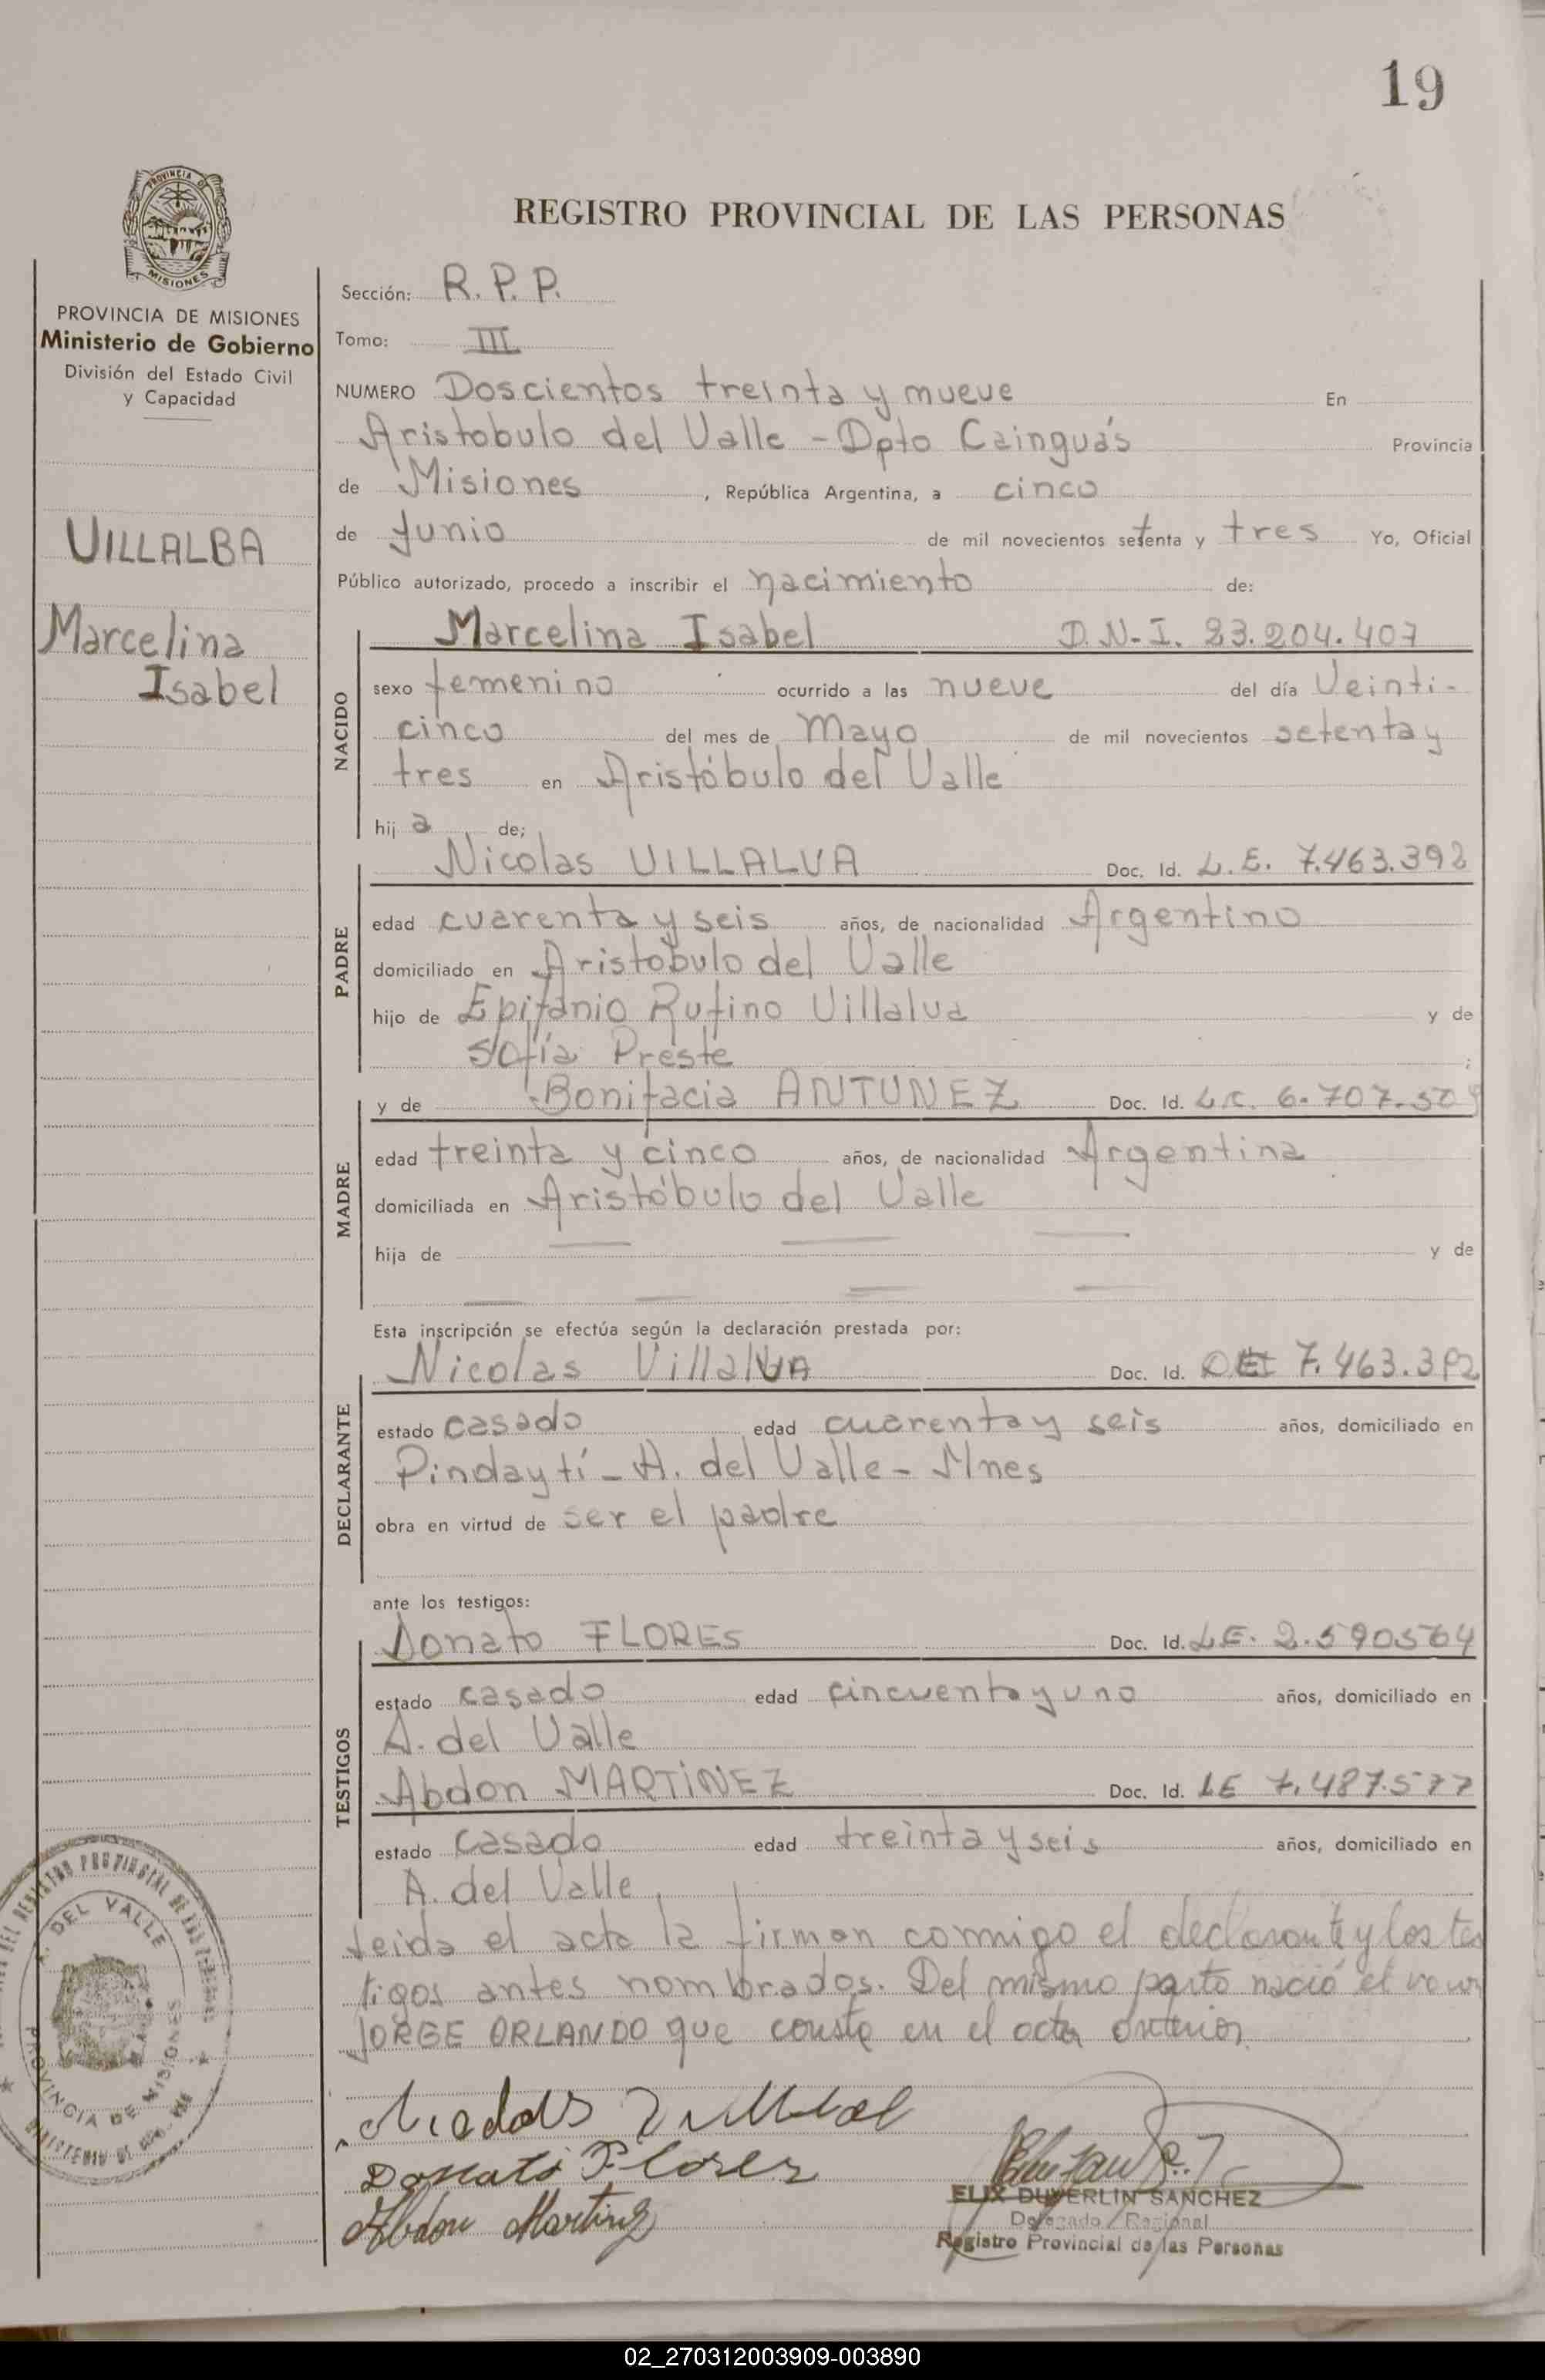 19
REGISTRO PROVINCIAL DE LAS PERSONAS
PROVINCIA DE MISIONES
PROVINCIA DE MISIONES
Ministerio de Gobierno
División del Estado Civil
y Capacidad
VILLALBA
Marcelina
Isabel
Sección: R.P.P.
Tomo: III
NUMERO Doscientos treinta y nueve En
Aristobulo del Valle - Dpto Cainguás Provincia
de Misiones, República Argentina, a cinco
de Junio de mil novecientos setenta y tres Yo, Oficial
Público autorizado, procedo a inscribir el nacimiento de:
Marcelina Isabel D.N.I. 23.204.407
NACIDO
sexo femenino ocurrido a las nueve del día Veinti-
cinco del mes de Mayo de mil novecientos setenta y
tres en Aristóbulo del Valle
hija de;
Nicolas VILLALVA Doc. Id. L.E. 7.463.392
PADRE
edad cuarenta y seis años, de nacionalidad Argentino
domiciliado en Aristobulo del Valle
hijo de Epifanio Rufino Villalva y de
Sofía Preste ;
y de Bonifacia ANTUNEZ Doc. Id. L.C. 6.707.
MADRE
edad treinta y cinco años, de nacionalidad Argentina
domiciliada en Aristóbulo del Valle
hija de y de
Esta inscripción se efectúa según la declaración prestada por:
Nicolas VillalVA Doc. Id. 7.463.392
DECLARANTE
estado casado edad cuarenta y seis años, domiciliado en
Pindaytí - A. del Valle - Mnes
obra en virtud de ser el padre
ante los testigos:
Donato FLORES Doc. Id. L.E. 2.590564
TESTIGOS
estado casado edad cincuenta y uno años, domiciliado en
A. del Valle
Abdon MARTINEZ Doc. Id. LE 7.487.577
estado casado edad treinta y seis años, domiciliado en
A. del Valle,
leida el acta la firman conmigo el declarante y los tes
tigos antes nombrados. Del mismo parto nació el
JORGE ORLANDO que consta en el acta anterior.
Donato Flores
Abdon Martinez
ELIX DUVERLIN SANCHEZ
Delegado Regional
Registro Provincial de las Personas
A. DEL VALLE
PROVINCIA DE MISIONES
02_270312003909-003890